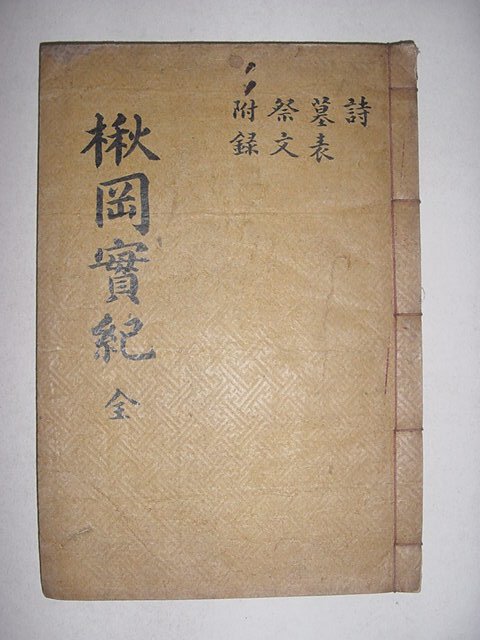 詩
墓表
祭文
附録
楸岡實紀 全